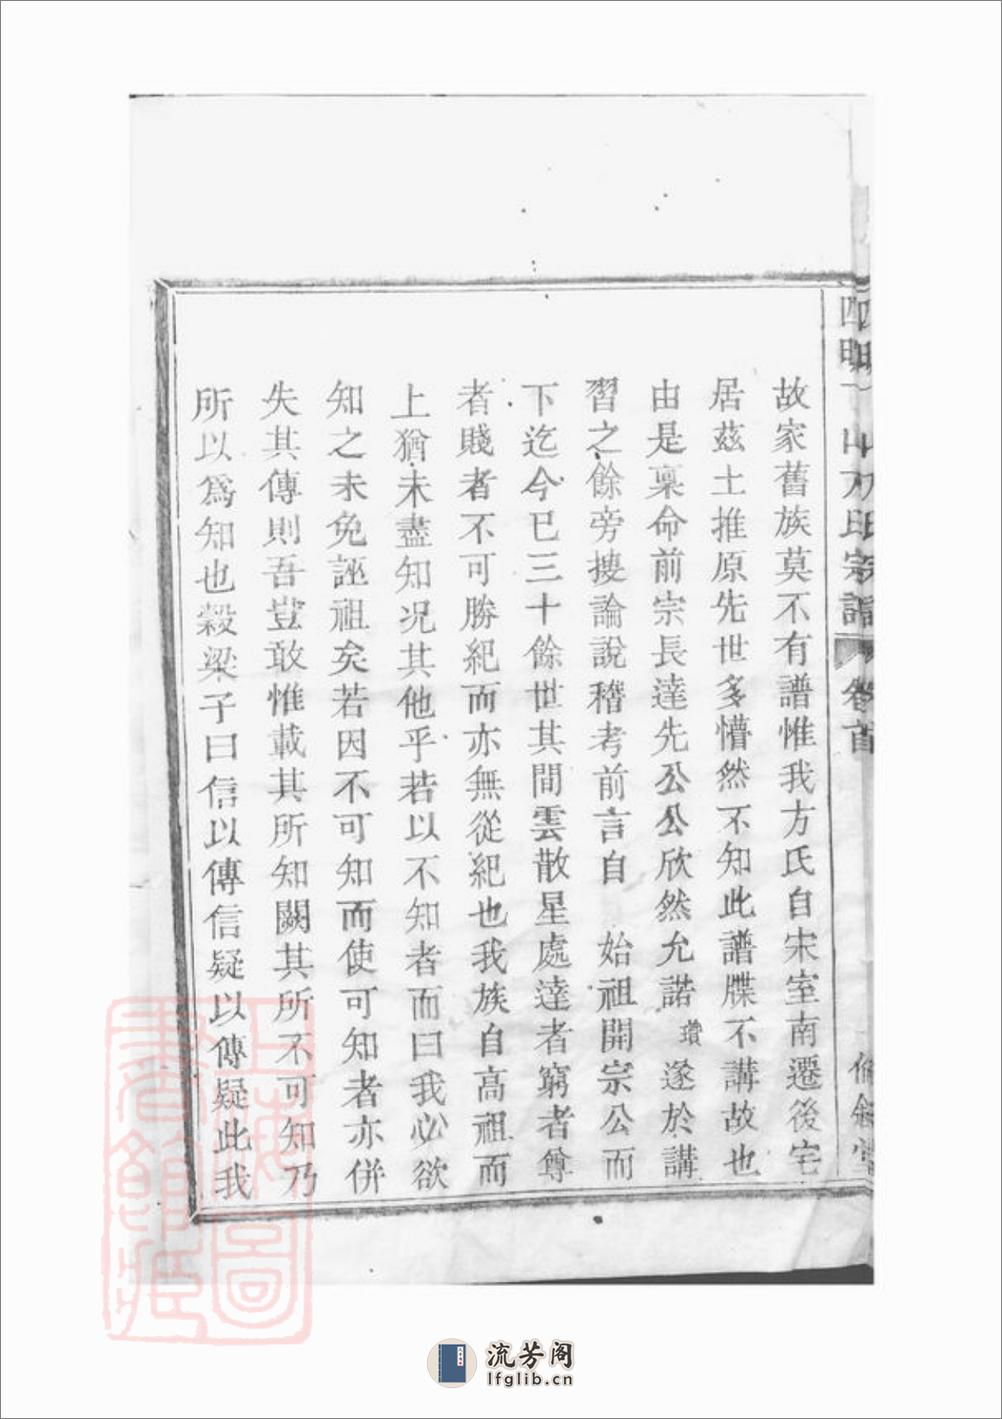 故家舊族莫不有譜惟我方氏自宋室南遷後宅
居茲土推原先世多懵然不知此譜牒不講故也
由是稟命前宗長達先公公欣然允諾瓚遂於講
習之餘旁搜論說稽考前言自 始祖開宗公而
下迄今已三十餘世其間雲散星處達者窮者尊
者賤者不可勝紀而亦無從紀也我族自高祖而
上猶未盡知況其他乎若以不知者而曰我必欲
知之未免誣祖矣若因不可知而使可知者亦併
失其傳則吾豈敢惟載其所知闕其所不可知乃
所以爲知也穀梁子曰信以傳信疑以傳疑此我
氏宗譜 卷首
上海圖
書館藏
流芳阁
lfglib.cn